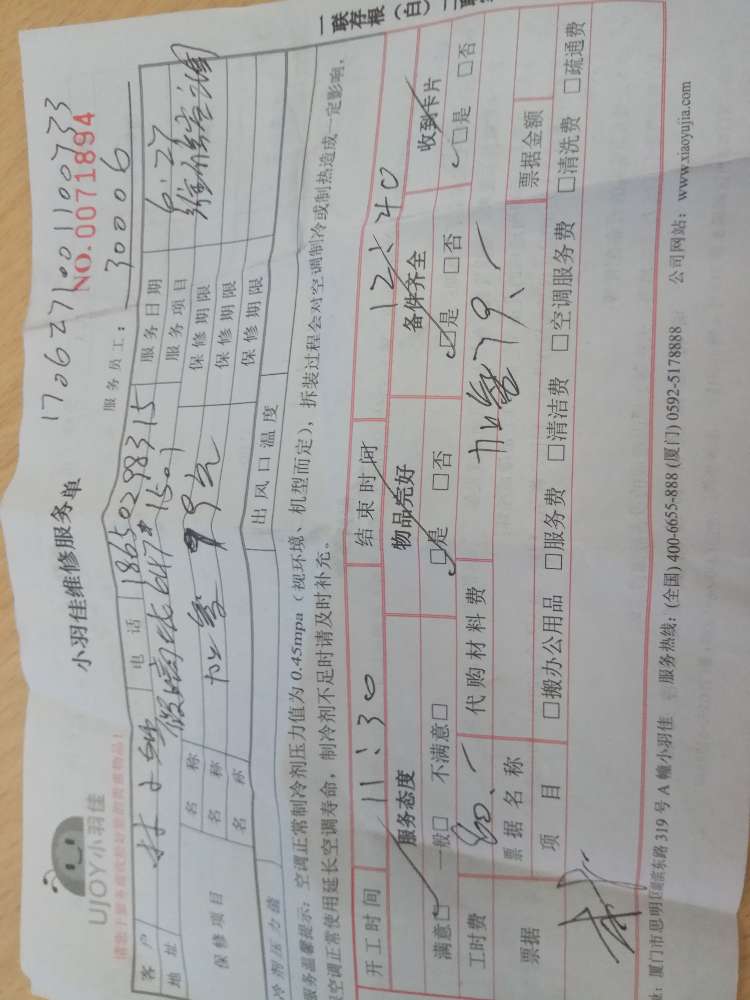 一联存根（白）二联
1706271001100733
UJOY小羽佳
小羽佳维修服务单
NO.0071894
服务员工：30006
客户 电话 18650298315 服务日期 6.27
地址 647#1501 服务项目
保修项目 名称 加氟 保修期限
名称 保修期限
名称 保修期限
冷剂压力值 出风口温度
服务温馨提示：空调正常制冷剂压力值为0.45mpa（视环境、机型而定），拆装过程会对空调制冷或制热造成一定影响，
空调正常使用延长空调寿命，制冷剂不足时请及时补充。
开工时间 11:30 结束时间 12:40
服务态度 物品完好 备件齐全 收到卡片
满意□ 一般□ 不满意□ □是 □否 □是 □否 □是 □否
工时费 80.- 代购材料费 加氟79.-
票据 票据名称 票据金额
项目 □搬办公用品 □服务费 □清洁费 □空调服务费 □清洗费 □疏通费
：厦门市思明区湖滨东路319号A幢小羽佳 服务热线：(全国) 400-6655-888 (厦门) 0592-5178888 公司网站：www.xiaoyujia.com